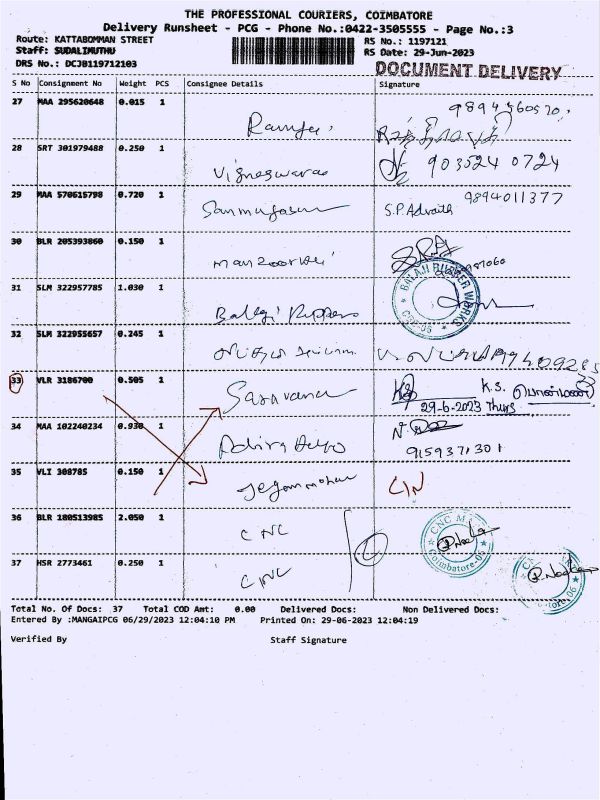 THE PROFESSIONAL COURIERS, COIMBATORE
Delivery Runsheet - PCG - Phone No.:0422-3505555 - Page No.:3
Route: KATTABOMMAN STREET
RS No.: 1197121
Staff: SUDALIMUTHU
RS Date: 29-Jun-2023
DRS No.: DCJB119712103
DOCUMENT DELIVERY
S No Consignment No Weight PCS Consignee Details Signature
27 MAA 295620648 0.015 1
28 SRT 301979488 0.250 1 Vigneswaran 903524 0724
29 MAA 570615798 0.720 1 S.P.Advaith 9894011377
30 BLR 205393860 0.150 1
31 SLM 322957785 1.030 1 Balagi Ruppers
BALAJI RUBBER WORKS
32 SLM 322955657 0.245 1
33 VLR 3186700 0.505 1 Saravana K.S. பொன்மணி
29-6-2023 Thurs
34 MAA 102240234 0.930 1 9159371301
35 VLI 308785 0.150 1 Jeganmohan C/N
36 BLR 180513985 2.050 1 CNC
Coimbatore-06
37 HSR 2773461 0.250 1 CNC
Total No. Of Docs: 37 Total COD Amt: 0.00 Delivered Docs: Non Delivered Docs:
Entered By :MANGAIPCG 06/29/2023 12:04:10 PM Printed On: 29-06-2023 12:04:19
Verified By Staff Signature